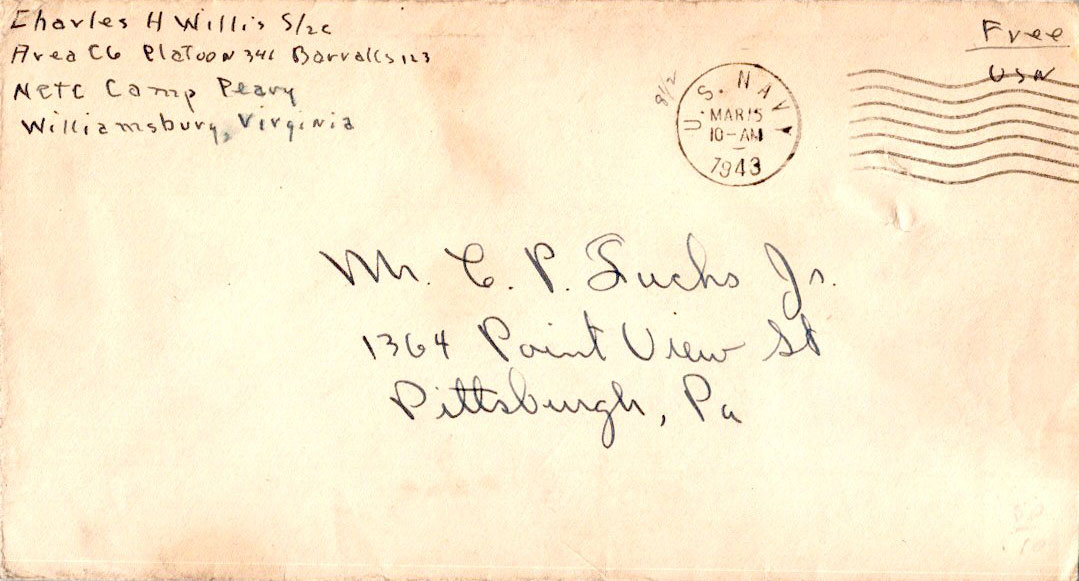 Charles H Willis S/2c
Area C6 Platoon 341 Barraks 123
NCTC Camp Peary
Williamsburg, Virginia
Free
USN
U.S. NAVY
MAR 15
10-AM
1943
Mr. C. P. Fuchs Jr.
1364 Point View St
Pittsburgh, Pa